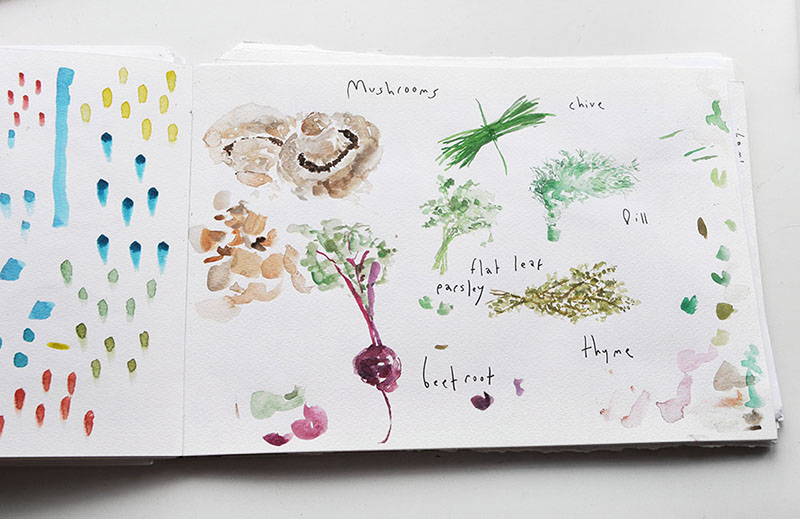 Mushrooms
chive
Dill
flat leaf
parsley
thyme
beetroot